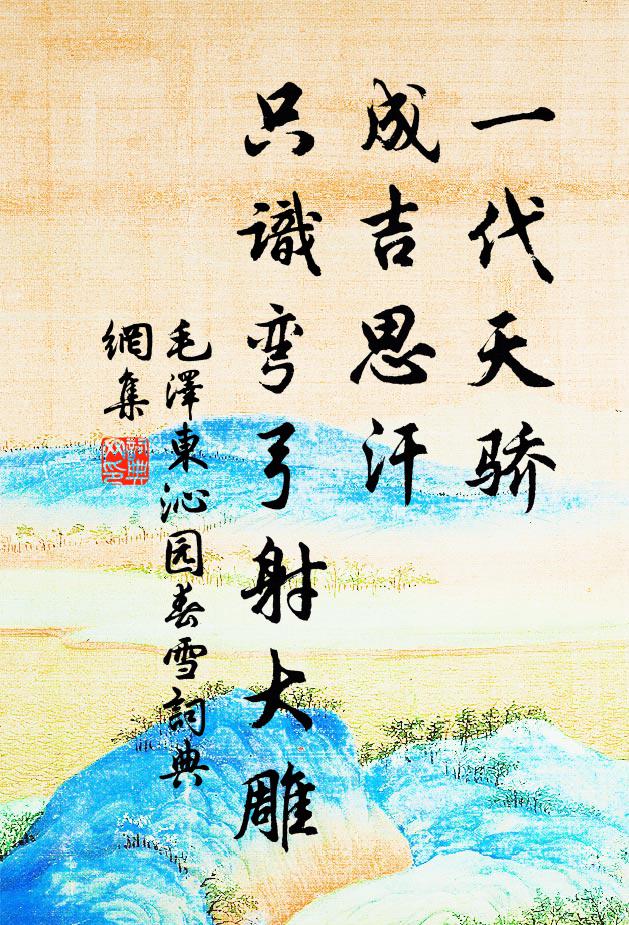 一代天骄
成吉思汗
只識彎弓射大雕
毛澤東沁园春雪詞典
網集